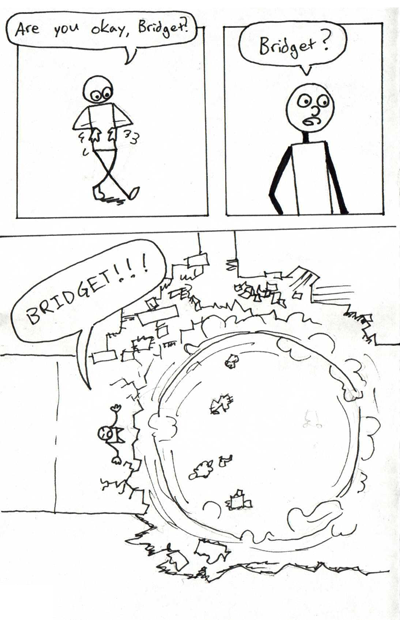 Are you okay, Bridget?
Bridget?
BRIDGET!!!